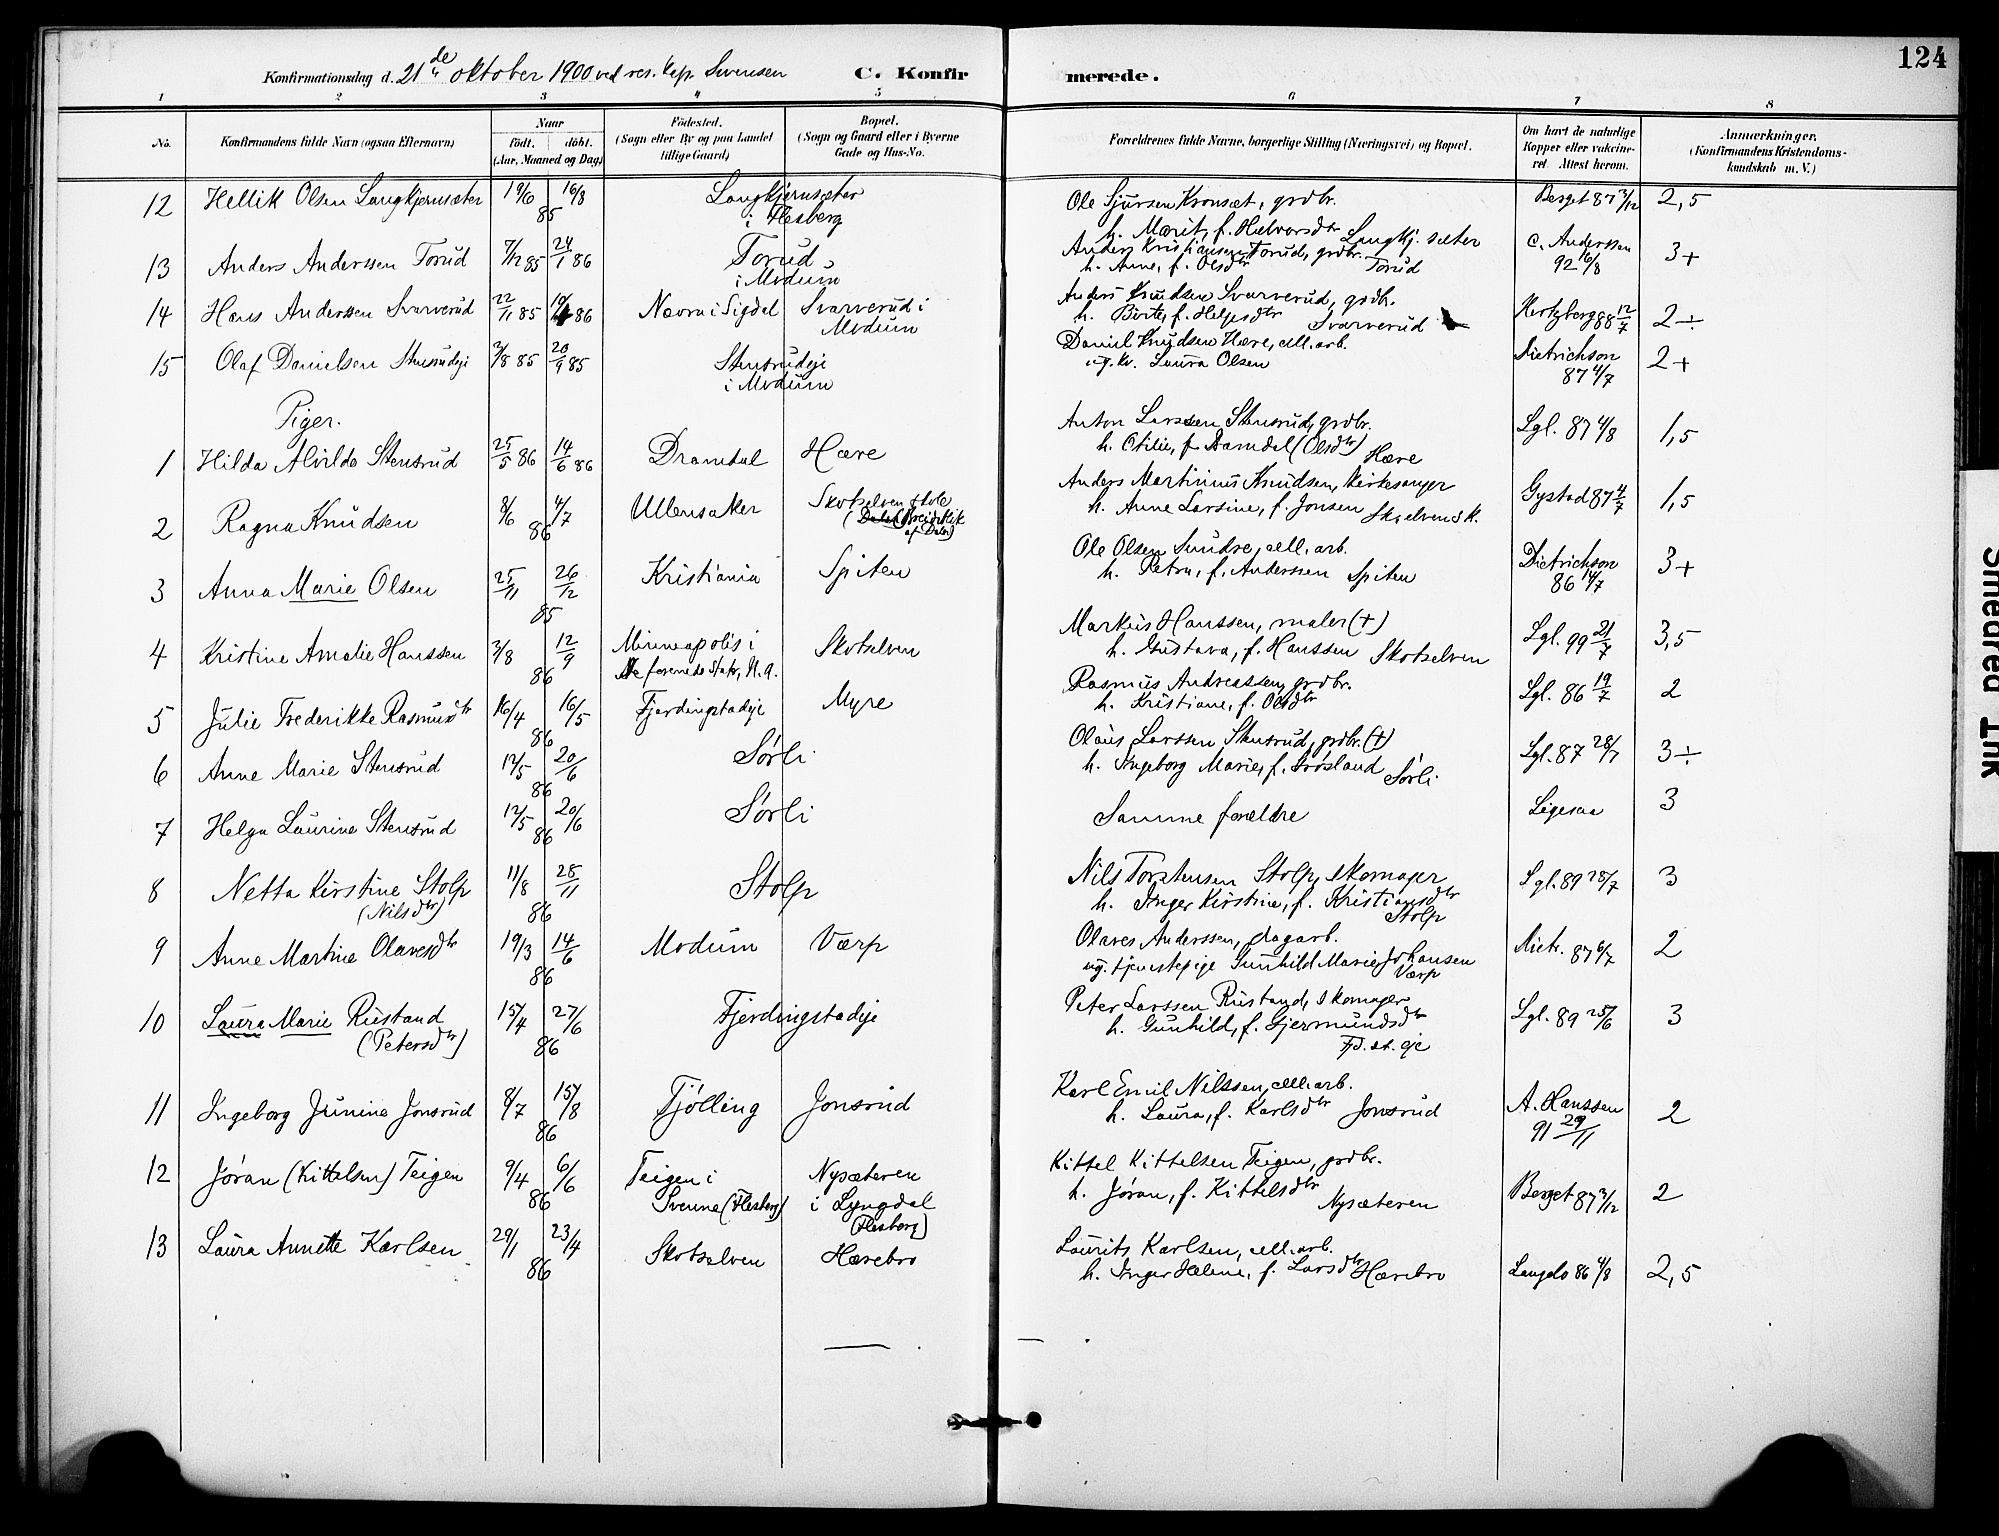 124
Konfirmationsdag d. 21de oktober 1900 ved res. kap. Svensen C. Konfirmerede.
1 2 3 4 5 6 7 8
No. Konfirmandens fulde Navn (ogsaa Efternavn) Naar født. døbt. (Aar, Maaned og Dag) Fødested. (Sogn eller By og paa Landet tillige Gaard) Bopæl. (Sogn og Gaard eller i Byerne Gade og Hus-No. Forældrenes fulde Navne, borgerlige Stilling (Næringsvei) og Bopæl. Om havt de naturlige Kopper eller vakcineret. Attest herom. Anmærkninger. (Konfirmandens Kristendomskundskab m. V.)
12 Hellik Olsen Langkjernsæter 19/6 16/8 85 Langkjernsæter i Flesberg Ole Sjursen Kronsæt, grdbr. Berget 87 3/12 2,5
h. Marit, f. Halvorsdtr Langkj. sæter
13 Anders Anderssen Torud 7/12 85 24/1 86 Torud i Modum Anders Kristiansen Torud, grdbr. C. Anderssen 92 16/8 3+
h. Anne, f. Olsdtr Torud
14 Hans Anderssen Svarverud 22/11 85 86 Nævra i Sigdal Svarverud i Modum Anders Knudsen Svarverud, grdbr. Hertzberg 88 12/7 2÷
h. Birte, f. Helgesdtr Svarverud
15 Olaf Danielsen Stensrudeje 2/8 85 20/9 85 Stensrudeje i Modum Daniel Knudsen Hære, cell. arb. Dietrichson 87 4/7 2+
ug. kv. Laura Olsen
Piger.
1 Hilda Alvilde Stensrud 25/5 86 14/6 86 Dramdal Hære Anton Larssen Stensrud, grdbr. Lgl. 87 4/8 1,5
h. Otilie, f. Damdal (Olsdtr) Hære
2 Ragna Knudsen 8/6 4/7 86 Ullensaker Skotselven skole Anders Martinius Knudsen, kirkesanger Gystad 87 4/7 1,5
h. Anne Larsine, f. Jonsen Skselven sk.
3 Anna Marie Olsen 25/11 26/12 85 Kristiania Spiten Ole Olsen Sundre, cell. arb. Dietrichson 86 14/7 3+
h. Petra, f. Anderssen Spiten
4 Kristine Amalie Hanssen 3/8 12/9 86 Minneapolis i De forenede Stater, N.A. Skotselven Markus Hanssen, maler (+) Lgl. 99 21/7 3,5
h. Gustava, f. Hanssen Skotselven
5 Julie Frederikke Rasmusdtr 16/4 16/5 86 Fjerdingstadeje Myre Rasmus Andreassen, grdbr. Lgl. 86 19/7 2
h. Kristiane, f. Olsdtr
6 Anne Marie Stensrud 12/5 20/6 86 Sørli Olaus Larssen Stensrud, grdbr. (+) Lgl. 87 28/7 3÷
h. Ingeborg Marie, f. Frøsland Sørli
7 Helga Laurine Stensrud 12/5 20/6 86 Sørli Samme forældre Ligesaa 3
8 Netta Kirstine Stolp (Nilsdtr) 11/8 28/11 86 Stolp Nils Torstensen Stolp, skomager Lgl. 89 28/7 3
h. Inger Kirstine, f. Kristiansdtr Stolp
9 Anne Martine Olavesdtr 19/3 14/6 86 Modum Værp Olaves Anderssen, dagarb. Dietr. 87 6/7 2
ug. tjenstepige Gunhild Marie Johansen Værp
10 Laura Marie Rustand (Petersdtr) 15/4 27/6 86 Fjerdingstadeje Peter Larssen Rustand, skomager Lgl. 89 25/6 3
h. Gunhild, f. Gjermundsdtr Fjd. st. eje
11 Ingeborg Junine Jonsrud 8/7 15/8 86 Tjølling Jonsrud Karl Emil Nilssen, cell. arb. A. Hanssen 91 29/11 2
h. Laura, f. Karlsdtr Jonsrud
12 Jøran (Kittelsen) Teigen 9/4 6/6 86 Teigen i Svenne (Flesberg) Nysæteren i Lyngdal (Flesberg) Kittel Kittelsen Teigen, grdbr. Berget 87 3/12 2
h. Jøran, f. Kittelsdtr Nysæteren
13 Laura Annette Karlsen 29/1 23/4 86 Skotselven Hærebro Laurits Karlsen, cell. arb. Langelo 86 4/8 2,5
h. Inger Helene, f. Larsdtr Hærebro
Smeared Ink